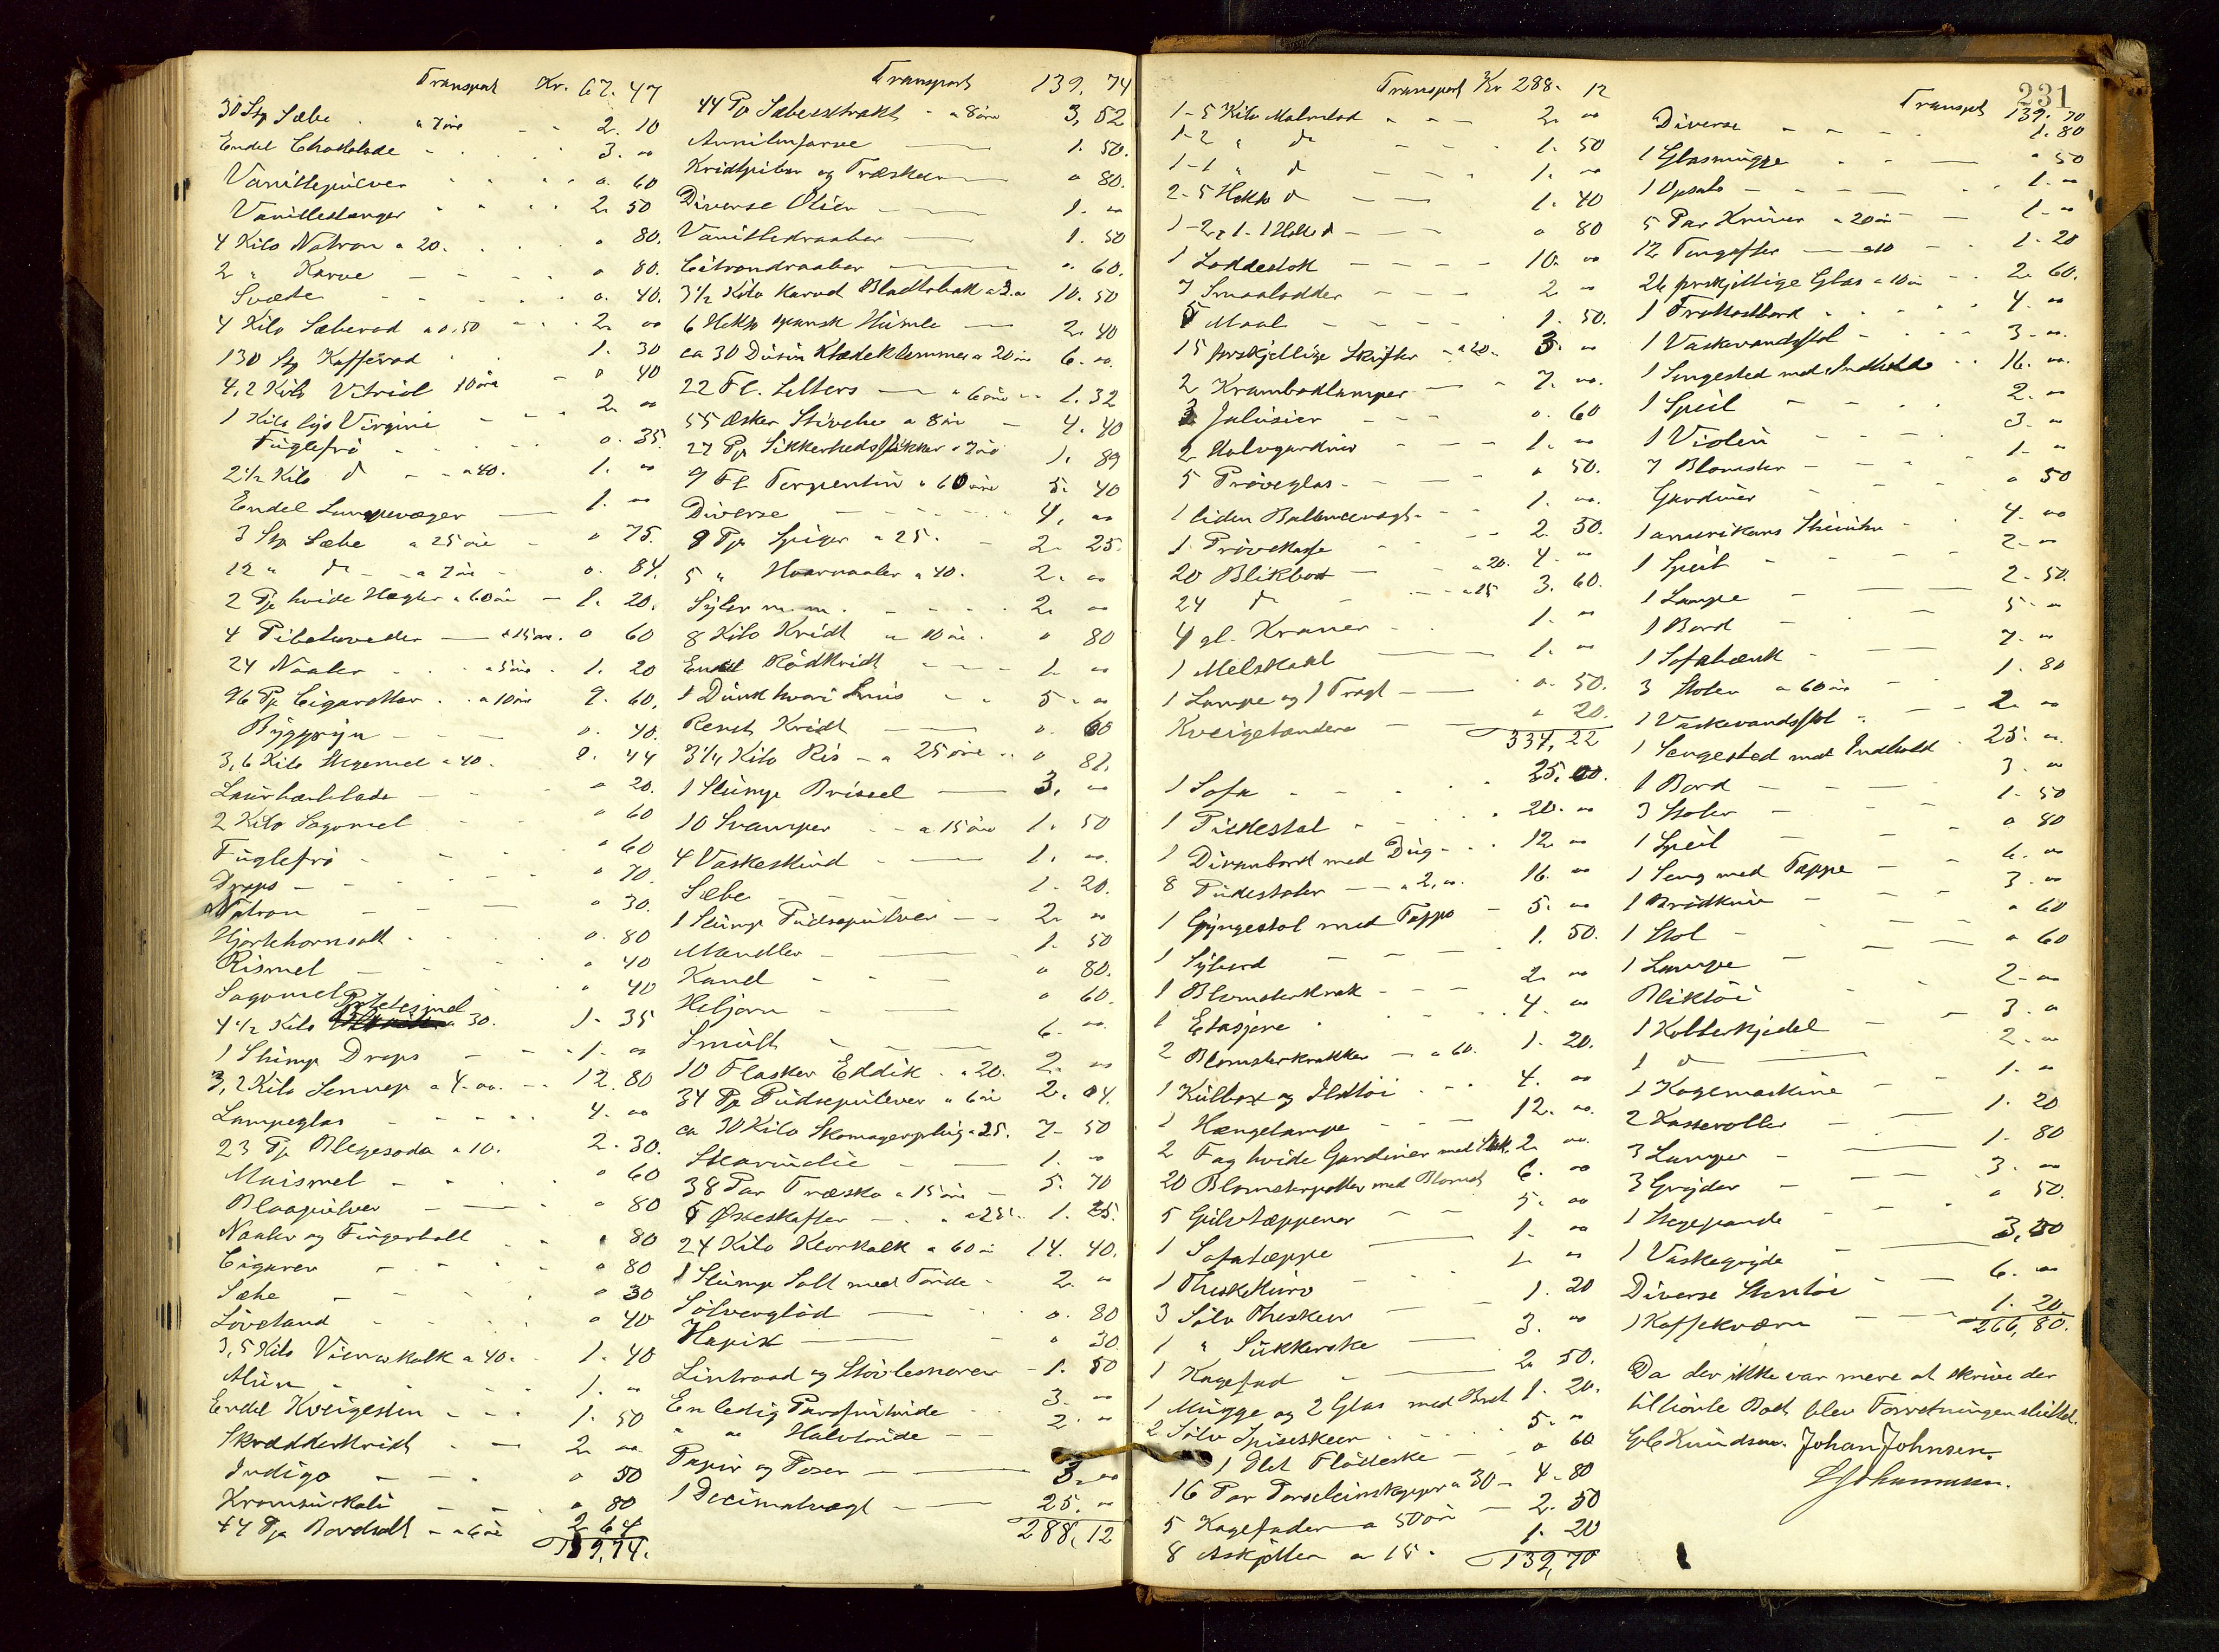 Transport Kr. 67. 47
30 Stp Sæbe a 7 øre 2. 10
Endel Chokolade 3. "
Vanillepulver o. 60
Vanillestænger 2. 50
4 Kilo Natron a 20. o 80.
2 " Karve o 80.
Svæle o. 40.
4 Kilo Sæberod a 0,50 2. "
130 Stp Kafferod 1. 30
4,2 Kilo Vitriol 10 øre o 40
1 Kilo lys Virgini 2. "
Fuglefrø o. 35.
2 1/2 Kilo do a 40. 1. "
Endel Lampevæger 1. "
3 Stp Sæbe a 25 øre o 75.
12 " do a 7 øre o. 84.
2 Pk hvide Hægter a 60 øre 1. 20.
4 Pibehoveder a 15 øre. o 60
24 Naaler a 5 øre 1. 20
96 Pk Cigaretter a 10 øre 9. 60.
Byggryn o. 40.
3,6 Kilo Stegemel a 40. 1. 44
Laurbærblade o 20.
2 Kilo Sagomel o 60
Fuglefrø o 60
Drops o 70.
Natron o 30.
Hjortehornsalt o. 80
Rismel o 40
Sagomel o 40
4 1/2 Kilo Potetesmel a 30. 1. 35
1 Slump Drops 1. "
3,2 Kilo Sennep a 4. oo. 12. 80
Lampeglas 4. "
23 Pk Blegesoda a 10. 2. 30.
Maismel o 60
Blaapulver o 80
Naaler og Fingerbøll o 80
Cigarer o 80
Sæbe o 30
Løvetand o 40
3,5 Kilo Vienerkalk a 40. 1. 40
Alun 1. "
Endel Kveigesten 1. 50
Skrædderkridt 2. "
Indigo o 50
Kromsurkali o 80
44 Pk Bordsalt a 6 øre 2 64
139,74.
Transport 139. 74
44 Pk Sæbeextrakt a 8 øre 3, 52
Annilinfarve 1. 50.
Kridtpiber og Træskeer o 80.
Diverse Olier 1. "
Vanilledraaber 1. 50
Citrondraaber o. 60.
3 1/2 Kilo Karvd Bladtobak a 3. " 10. 50
6 Hekto spansk Humle 2. 40
ca 30 Dusin Klædeklemmer a 20 øre 6. oo.
22 Fl. Selters a 6 øre 1. 32
55 Æsker Stivelse a 8 øre 4. 40
27 Pk Sikkerhedsstikker a 7 øre 1. 89
9 Fl Terpentin a 60 øre 5. 40
Diverse 4. "
9 Pk Spiger a 25. 2. 25.
5 " Haarnaaler a 40. 2. "
Syler m. m. 2. "
8 Kilo Kridt a 10 øre. o 80
Endel Rødkridt 1. "
1 Dunk hvori Snus 5. "
Renset Kridt o. 60
3 1/4 Kilo Ris a 25 øre o 81.
1 Slump Brissel 3. "
10 Svamper a 15 øre 1. 50
4 Vaskeskind 1. "
Sæbe 1. 20.
1 Slump Pudsepulver 2. "
Mandler 1. 50
Kanel o 80.
Heljorn o 60.
Smult 6. "
10 Flasker Eddik a 20. 2. "
34 Pk Pudsepulver a 6 øre 2. 04.
ca 30 Kilo Skomagerplug a 25. 7. 50
Stearinlie 1. "
38 Par Træsko a 15 øre 5. 70
5 Øxeskafter a 25. 1. 25.
24 Kilo Klorkalk a 60 øre 14. 40.
1 Slump Salt med Tønde 2. "
Sølverglød o. 80
Harpix o 30
Lintraad og Støvlesnorer 1. 50
En ledig Parafintønde 3. "
" " Halvtønde 2. "
Papir og Poser 3. oo
1 Decimalvægt 25. "
288,12
Transport Kr 288. 12
1 - 5 Kilo Malmlod 2. "
1 - 2 " do 1. 50
1 - 1 " d 1. "
2 - 5 Hekto d 1. 40
1 - 2, 1 - 1 Hekto d o 80
1 Loddestok 10. "
7 Smaalodder 2. "
5 Maal 1. 50.
15 forskjellige Skuffer a 20. 3. "
2 Krambodlamper 7. "
3 Jalusier o. 60
2 Halvgardiner 1. "
5 Prøveglas o 50.
1 liden Ballancevægt 1. "
1 Prøvekasse 2. 50.
20 Blikbox a 20. 4. "
24 do a 15 3. 60.
4 gl. Kraner 1. "
1 Melskaal 1. "
1 Lampe og 1 Tragt o. 50.
Kveigetændere o 20.
334, 22
1 Sofa 25. oo.
1 Pidestal 20. "
1 Divanbord med Dug 12. "
8 Pudestoler a 2, oo. 16. "
1 Gyngestol med Tæppe 5. "
1 Sybord 1. 50.
1 Blomsterkrak 2. "
1 Etasjere 4. "
2 Blomsterkrakker a 60. 1. 20.
1 Kulbox og Ildtøi 4. "
1 Hængelampe 12. "
2 Fag hvide Gardiner med Stok. 2. "
20 Blomsterpotter med Blomst 6. "
5 Gulvtæppener 5. "
1 Sofatæppe 1. "
1 Theskkurv 1. "
3 Sølv Theskeer 1. 20
1 " Sukkerske 3. "
1 Kagefad 2. 50.
1 Mugge og 2 Glas med Bret 1. 20.
2 Sølv Spiseskeer 5. "
1 Plet Flødeske o 60
16 Par Porcelænskopper a 30 4. 80
5 Kagefader a 50 øre 2. 50
8 Asketter a 15. 1. 20
139,70
231
Transpt 139. 70
Diverse 1. 80
1 Glasmugge o 50
1 Opsats 1. "
5 Par Kniver a 20 øre 1. "
12 Tengafler a 10 1. 20
26 forskjellige Glas a 10 øre 2. 60.
1 Frokostbord 4. "
1 Vaskevandsstol 3. "
1 Sengested med Indhold 16. "
1 Speil 2. "
1 Violin 3. "
7 Blomster 1. "
Gardiner o 50
1 amerikans Stueuhr 4. "
1 Speil 2. "
1 Lampe 2. 50.
1 Bord 5. "
1 Sofabænk 7. "
3 Stoler a 60 øre 1. 80
1 Vaskevandsstol 2. "
1 Sengested med Indhold 25. "
1 Bord 3. "
3 Stoler 1. 50
1 Speil o 80
1 Seng med Tæppe 6. "
1 Brødkniv 3. "
1 Stol o 60
1 Lampe o 60
Bliktøi 2. "
1 Kobberkjedel 3. "
1 do 2. "
1 Kogemaskine 1. "
2 Kasseroller 1. 20
3 Lamper 1. 80
3 Gryder 3. "
1 Stegepande o 50.
1 Vaskegryde 3,50
Diverse Stentøi 6. "
1 Kaffekværn 1. 20.
266, 80.
Da der ikke var mere at skrive der
tilhørte Boet blev Forretningen sluttet.
Johan Johnsen.